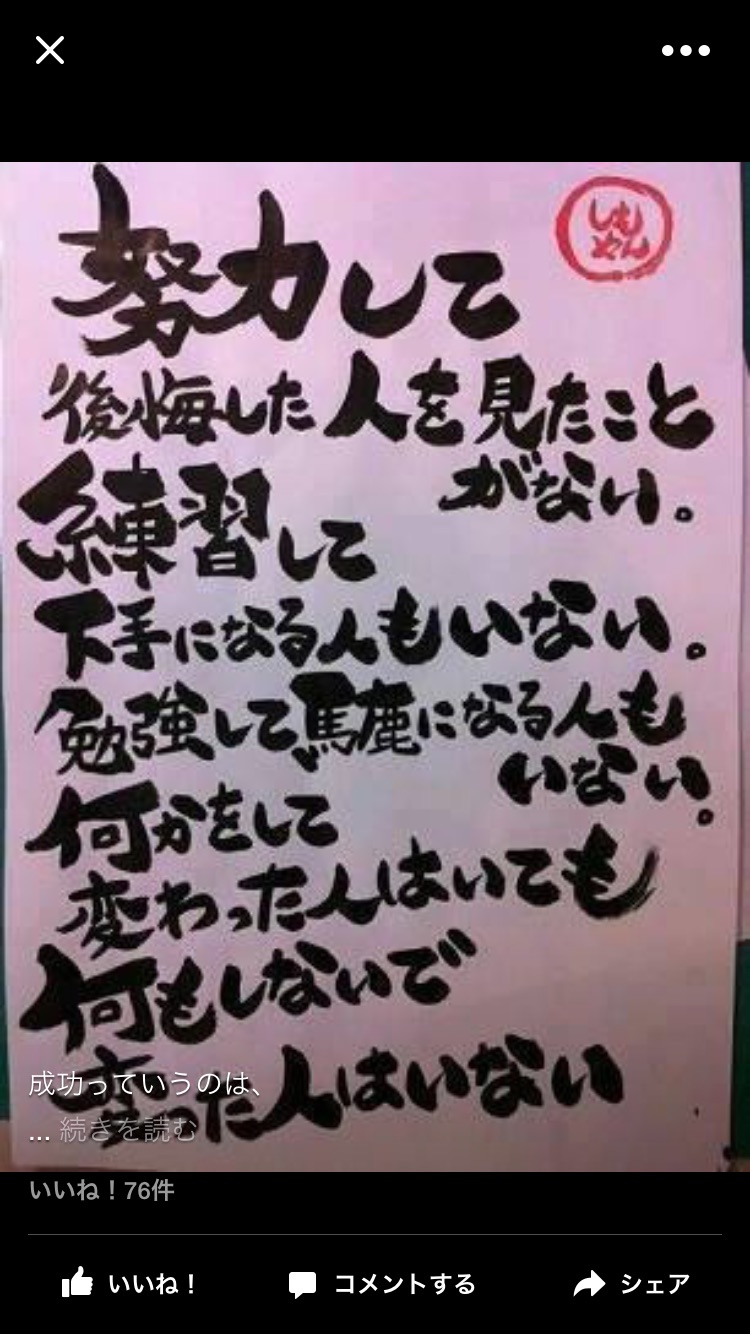 しも
やん
努力して
後悔した人を見たこと
がない。
練習して
下手になる人もいない。
勉強して馬鹿になる人も
いない。
何かをして
変わった人はいても
何もしないで
変わった人はいない
成功っていうのは、
... 続きを読む
いいね！76件
いいね！ コメントする シェア